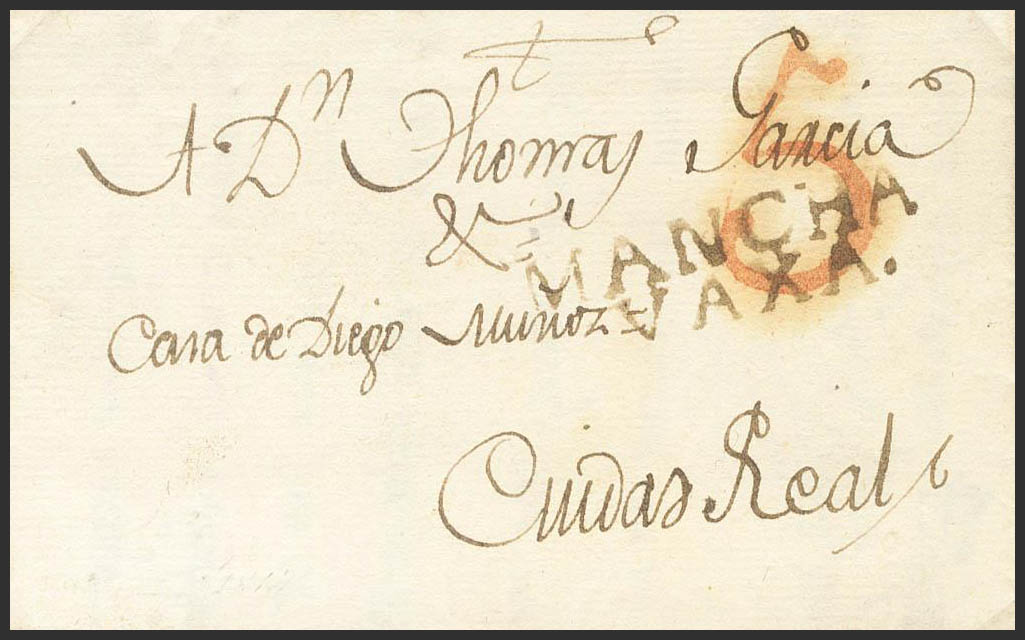 A Dn Thomas Garcia
&
5
MANCHA
VAXA.
Casa de Diego Muñoz =
Ciudad Real